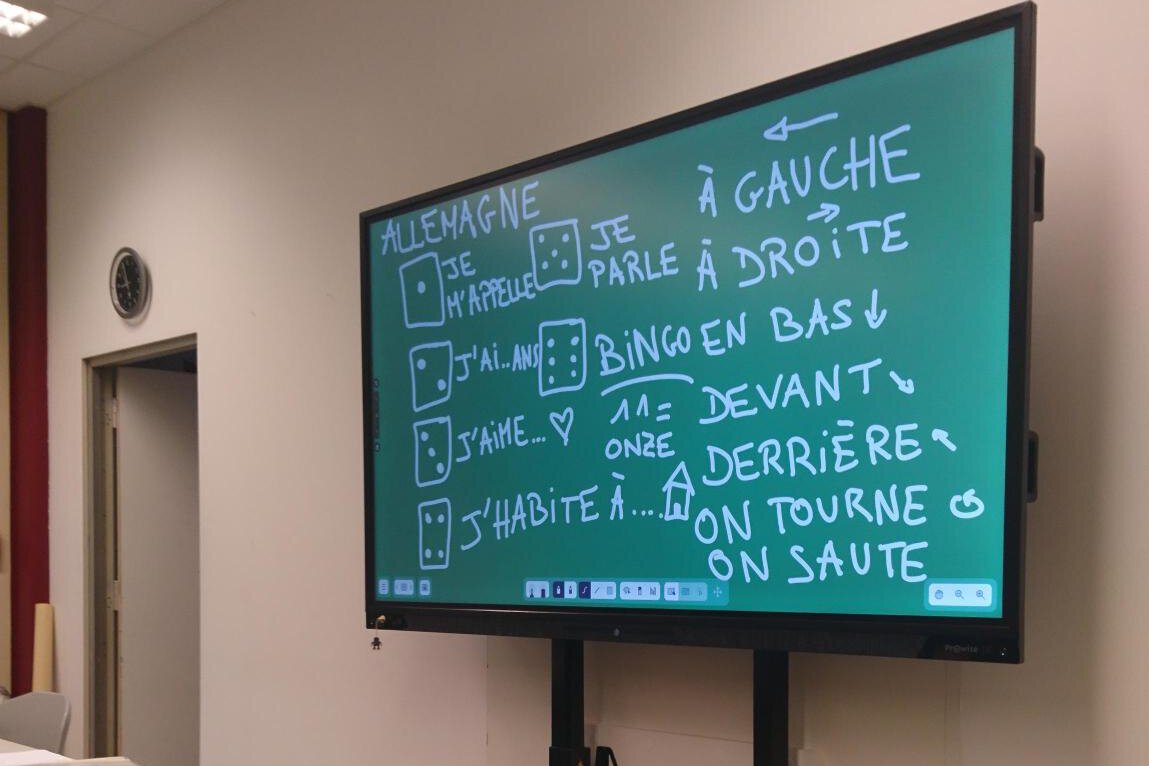 ALLEMAGNE
JE
M'APPELLE
J'Ai..ANS
J'AiME...
J'HABiTE À....
JE
PARLE
BiNGO
11=
ONZE
À GAUCHE
À DROiTE
EN BAS
DEVANT
DERRiÈRE
ON TOURNE
ON SAUTE
Prowise